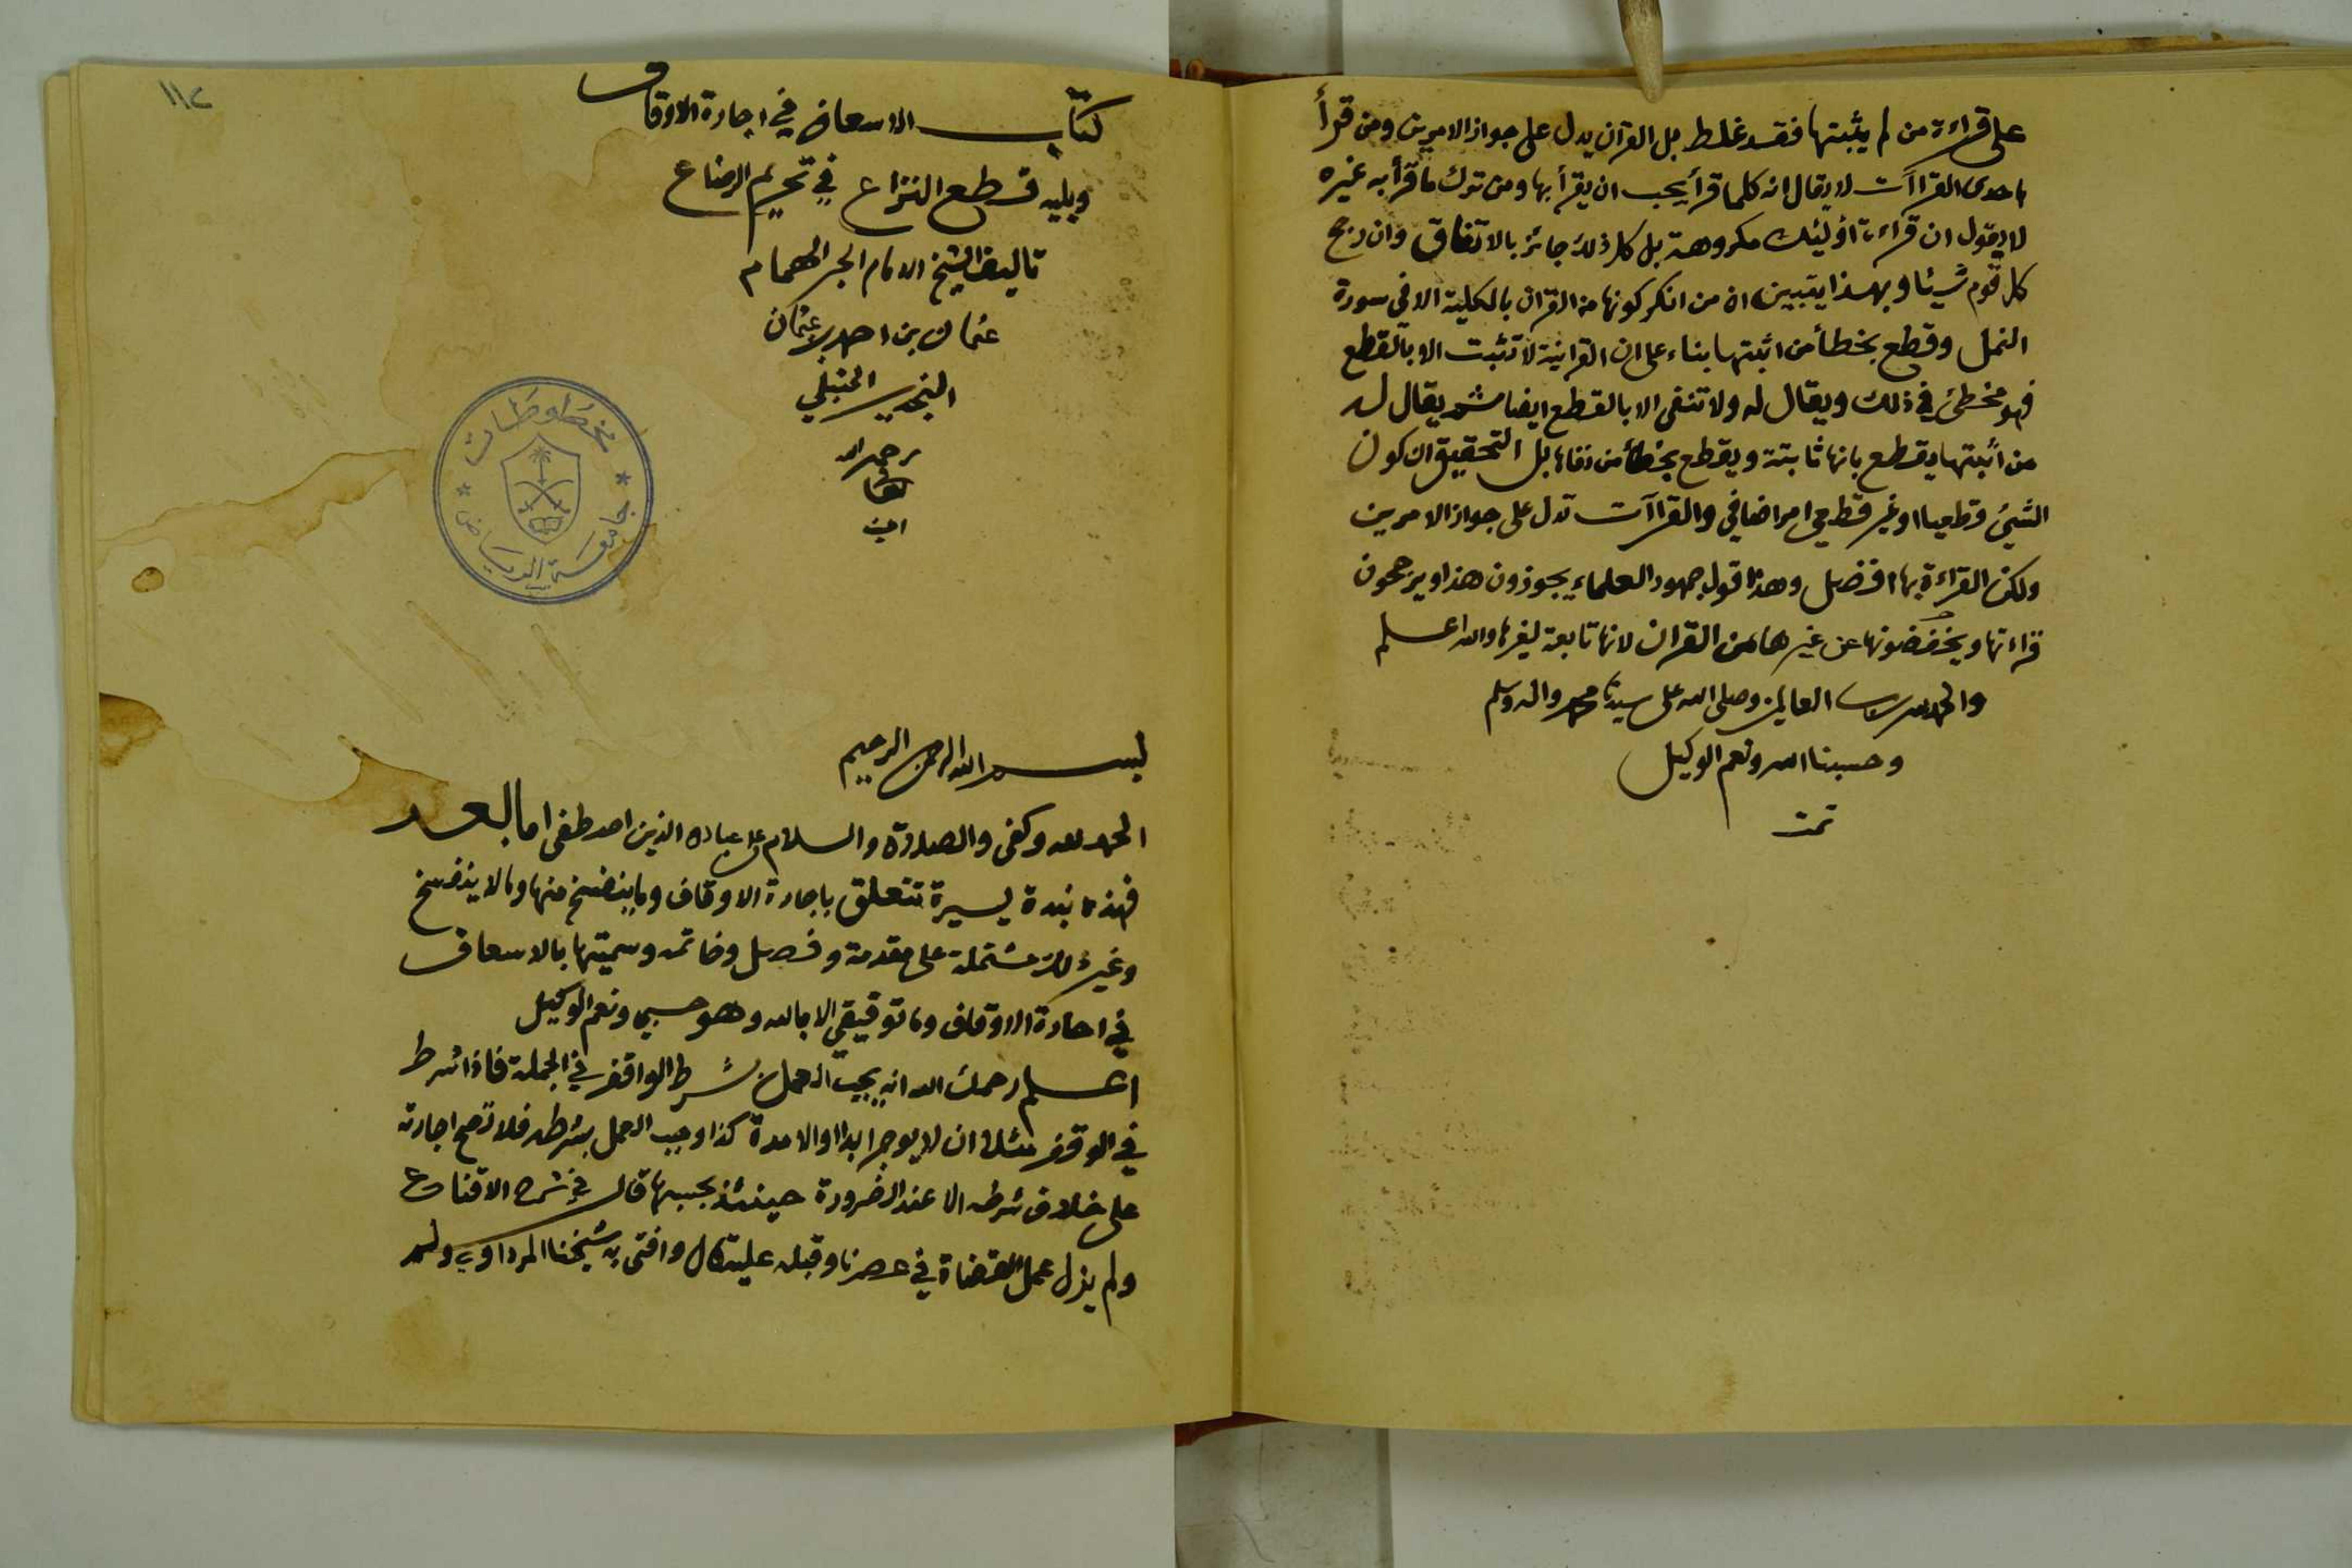 على قراءة من لم يثبتها فقد غلط بل القرآن يدل على جواز الامرين ومن قرأ
باحدى القراآت لا يقال انه كلما قرأ يجب ان يقرأ بها ومن ترك ما قرأ به غيره
لا يقول ان قراءة اوليئك مكروهة بل كل ذلك جائز بالاتفاق وان رجح
كل قوم شيئا وبهذا يتبين ان من انكر كونها من القران بالكلية الا في سورة
النمل وقطع بخطأ من اثبتها بناء على ان القرانية لا تثبت الا بالقطع
فهو مخطئ في ذلك ويقال له ولا تنفى الا بالقطع ايضا ثم يقال له
من اثبتها يقطع بانها ثابتة ويقطع بخطأ من نفاها بل التحقيق ان كون
الشيئ قطعيا او غير قطعي امر اضافي والقراآت تدل على جواز الامرين
ولكن القراءة بها افضل وهذا قول جمهور العلماء يجوزون هذا ويرجحون
قراءتها ويخفضونها عن غيرها من القران لانها تابعة لغيرها والله اعلم
والحمد لله رب العالمين وصلى الله على سيدنا محمد واله وسلم
وحسبنا الله ونعم الوكيل
تمت
١١٢
كتاب الاسعاف في اجارة الاوقاف
ويليه قطع النزاع في تحريم الرضاع
تاليف الشيخ الامام الحبر الهمام
عثمان بن احمد بن عثمان
النجدي الحنبلي
رحمه الله
تعالى
امين
مخطوطات
جامعة الرياض
بسم الله الرحمن الرحيم
الحمد لله وكفى والصلاة والسلام على عباده الذين اصطفى اما بعد
فهذه نبذة يسيرة تتعلق باجارة الاوقاف وما ينفسخ منها وما لا ينفسخ
وغير ذلك مشتملة على مقدمة وفصل وخاتمه وسميتها بالاسعاف
في اجارة الاوقاف وما توفيقي الا بالله وهو حسبي ونعم الوكيل
اعلم رحمك الله انه يجب العمل بشرط الواقف في الجملة فاذا شرط
في الوقف مثلا ان لا يوجر ابدا او الا مدة كذا وجب العمل بشرطه فلا تصح اجارته
على خلاف شرطه الا عند الضرورة حينئذ بحسبها قال في شرح الاقناع
ولم يزل عمل القضاة في عصرنا وقبله عليه قال وافتى به شيخنا المرداوي ولم